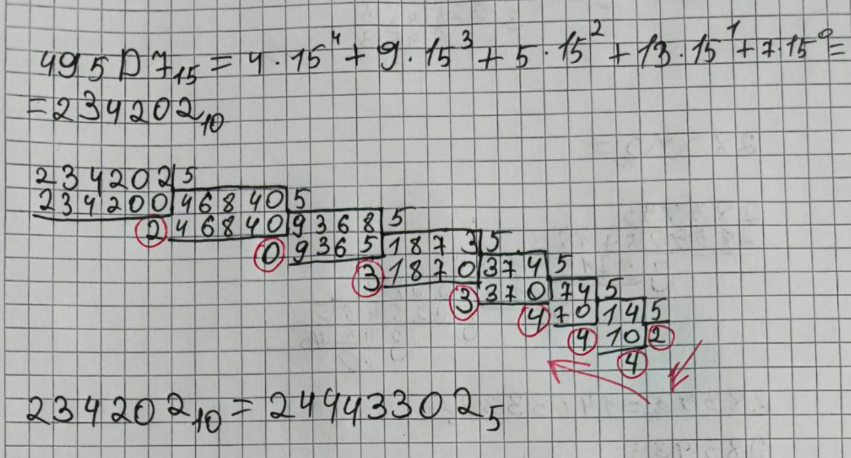 495D7₁₅ = 4·15⁴ + 9·15³ + 5·15² + 13·15¹ + 7·15⁰ =
= 234202₁₀
234202 5
234200 46840 5
2 46840 9368 5
0 9365 1873 5
3 1870 374 5
3 370 74 5
4 70 14 5
4 10 2
4
234202₁₀ = 24443302₅